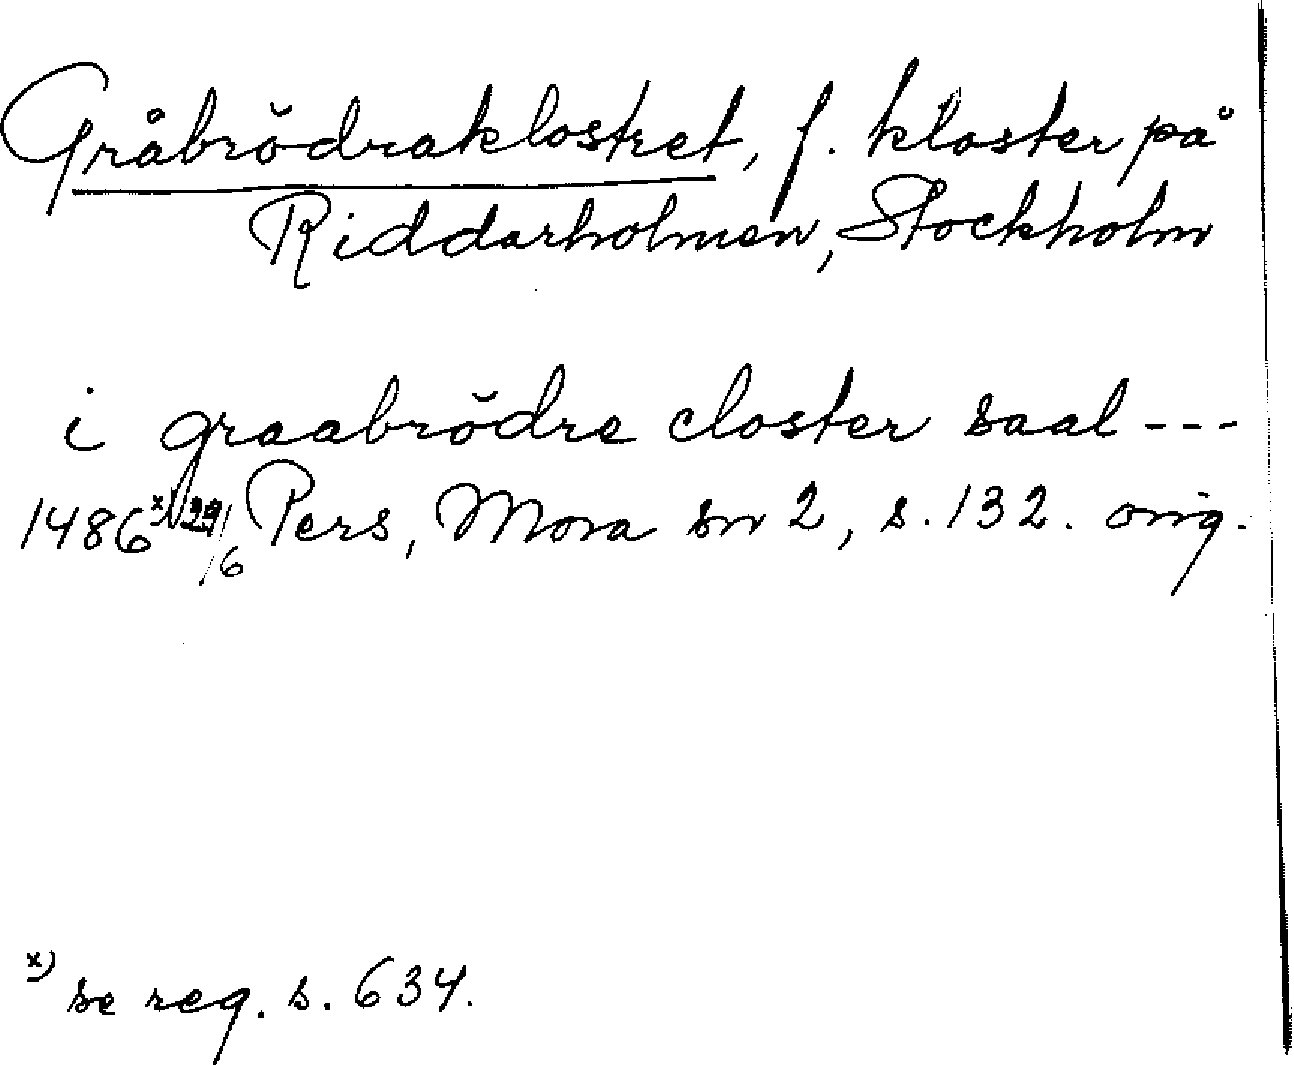 Gråbrödraklostret, f. kloster på
Riddarholmen, Stockholm
i graabrödre closter saal ---
1486 x) 29/6 Pers, Mora sn 2, s. 132. orig.
x) se reg. s. 634.